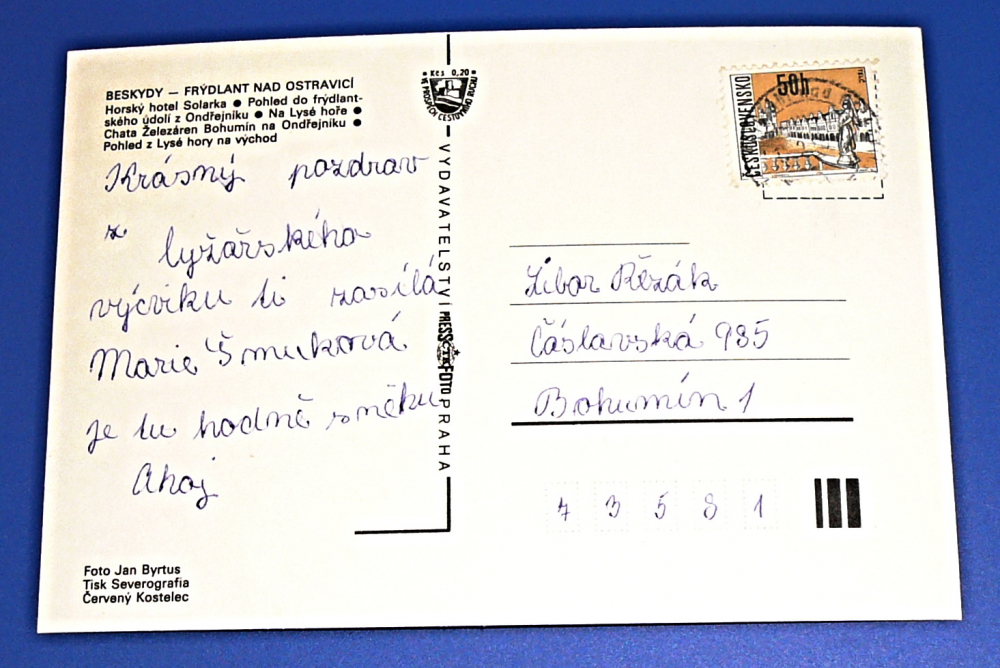 BESKYDY — FRÝDLANT NAD OSTRAVICÍ
Horský hotel Solarka ● Pohled do frýdlant-
ského údolí z Ondřejníku ● Na Lysé hoře ●
Chata Železáren Bohumín na Ondřejníku ●
Pohled z Lysé hory na východ
Krásný pozdrav
z lyžařského
výcviku ti zasílá
Marie Šmuková
je tu hodně sněku
Ahoj
Foto Jan Byrtus
Tisk Severografia
Červený Kostelec
Kčs 0,20
VE PROSPĚCH CESTOVNÍHO RUCHU
VYDAVATELSTVÍ PRESSFOTO PRAHA
ČTK
ČESKOSLOVENSKO
50h
Libor Řezák
Čáslavská 985
Bohumín 1
73581